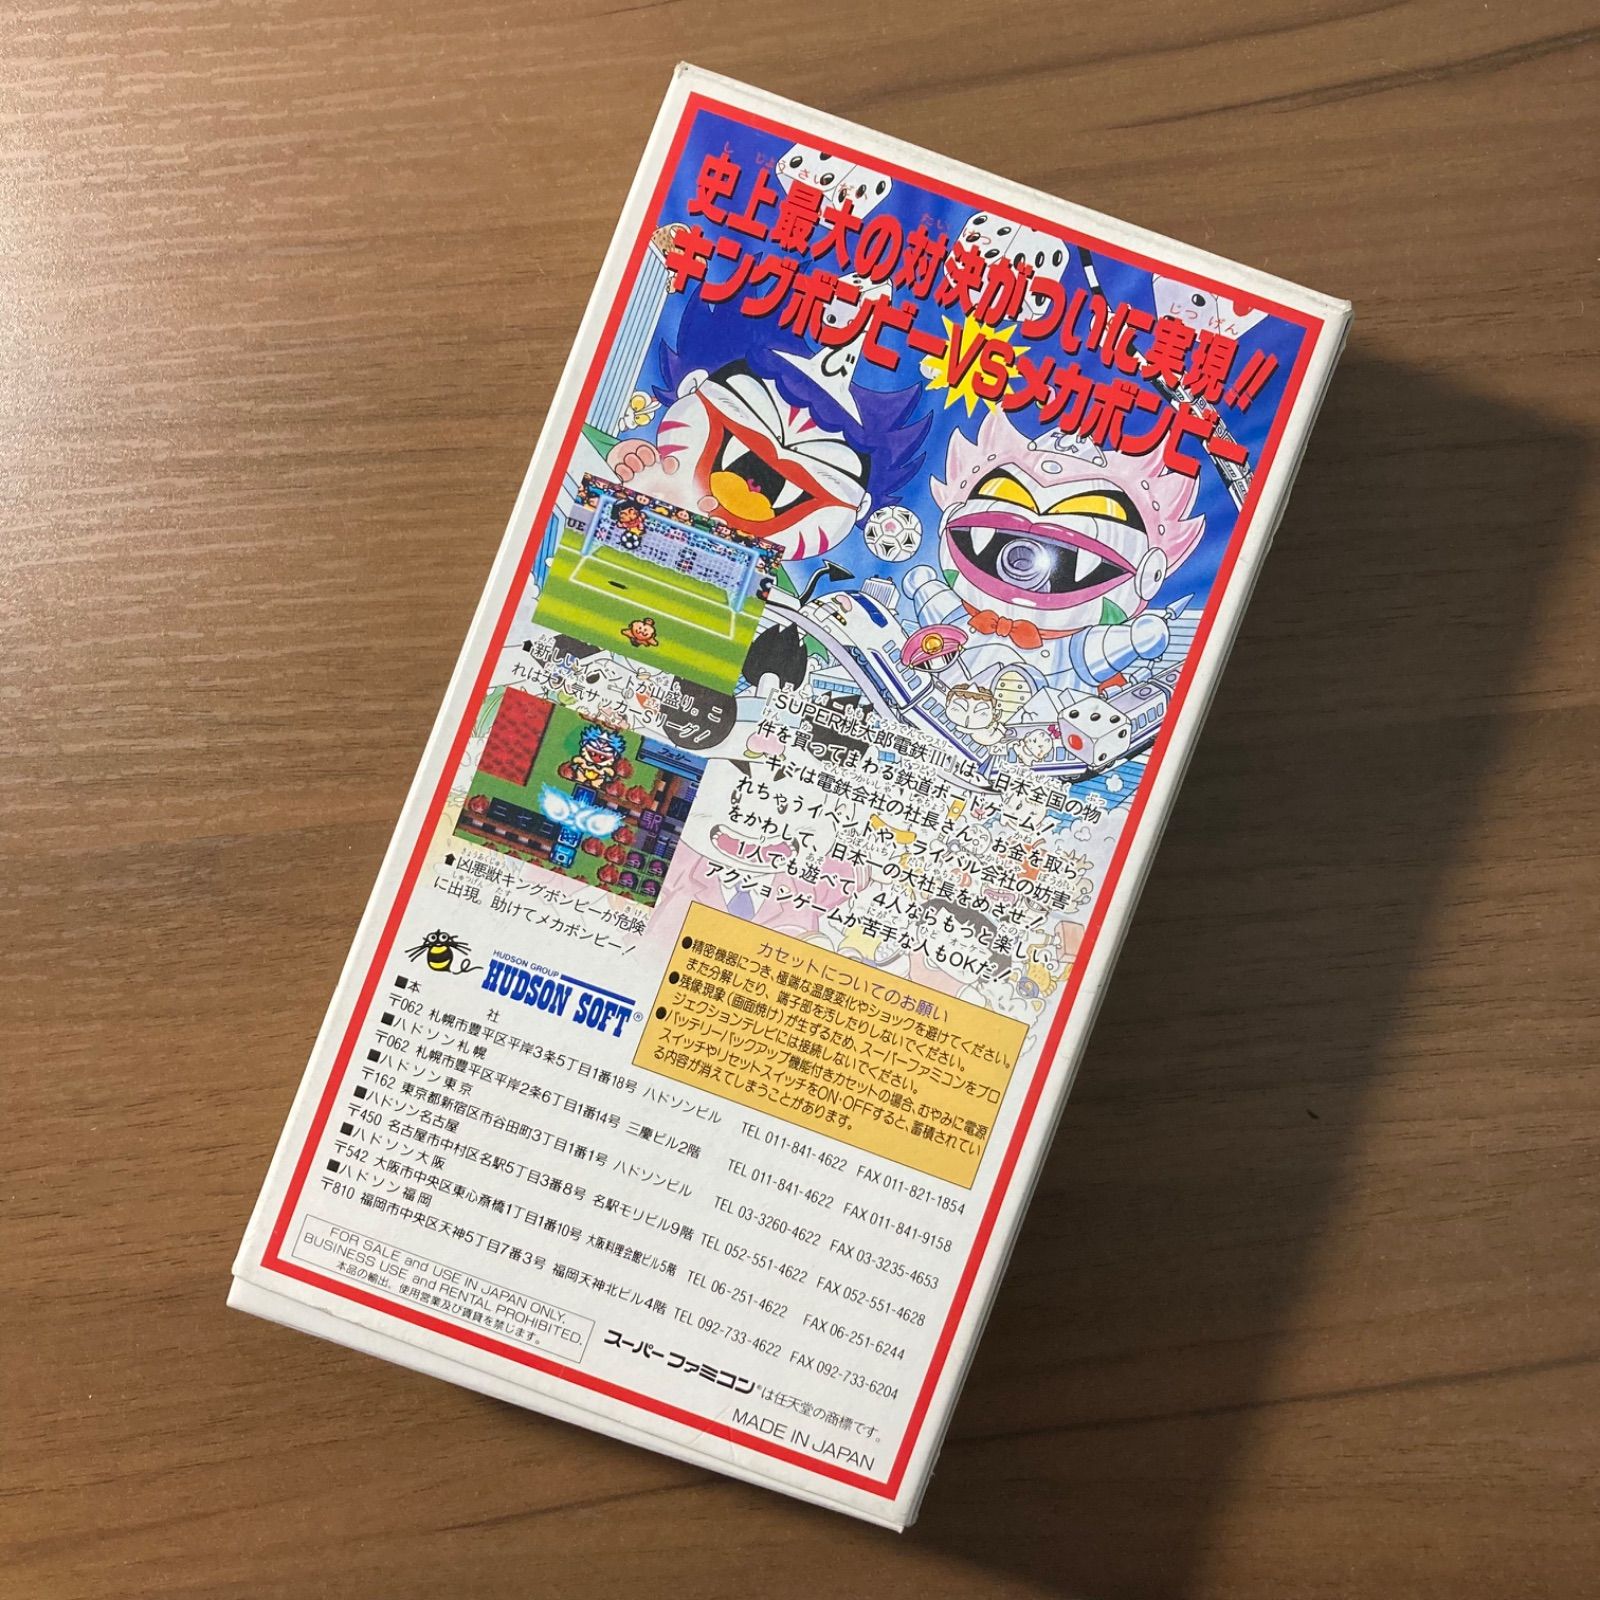 史上最大の対決がついに実現!!
キングボンビーVSメカボンビー
び
⬆新しいイベントが山盛り。こ
れは大人気サッカーSリーグ!
⬆凶悪獣キングボンビーが危険
に出現。助けてメカボンビー!
「SUPER桃太郎電鉄III」は、日本全国の物
件を買ってまわる鉄道ボードゲーム!
キミは電鉄会社の社長さん。お金を取ら
れちゃうイベントや、ライバル会社の妨害
をかわして、日本一の大社長をめざせ!
1人でも遊べて、4人ならもっと楽しい。
アクションゲームが苦手な人もOKだ!
カセットについてのお願い
●精密機器につき、極端な温度変化やショックを避けてください。
また分解したり、端子部を汚したりしないでください。
●残像現象(画面焼け)が生ずるため、スーパーファミコンをプロ
ジェクションテレビには接続しないでください。
●バッテリーバックアップ機能付きカセットの場合、むやみに電源
スイッチやリセットスイッチをON・OFFすると、蓄積されてい
る内容が消えてしまうことがあります。
HUDSON GROUP
HUDSON SOFT®
■本　社
〒062 札幌市豊平区平岸3条5丁目1番18号 ハドソンビル TEL 011-841-4622 FAX 011-821-1854
■ハドソン札幌
〒062 札幌市豊平区平岸2条6丁目1番14号 三慶ビル2階 TEL 011-841-4622 FAX 011-841-9158
■ハドソン東京
〒162 東京都新宿区市谷田町3丁目1番1号 ハドソンビル TEL 03-3260-4622 FAX 03-3235-4653
■ハドソン名古屋
〒450 名古屋市中村区名駅5丁目3番8号 名駅モリビル9階 TEL 052-551-4622 FAX 052-551-4628
■ハドソン大阪
〒542 大阪市中央区東心斎橋1丁目1番10号 大阪料理会館ビル5階 TEL 06-251-4622 FAX 06-251-6244
■ハドソン福岡
〒810 福岡市中央区天神5丁目7番3号 福岡天神北ビル4階 TEL 092-733-4622 FAX 092-733-6204
FOR SALE and USE IN JAPAN ONLY.
BUSINESS USE and RENTAL PROHIBITED.
本品の輸出、使用営業及び賃貸を禁じます。
スーパーファミコン®は任天堂の商標です。
MADE IN JAPAN